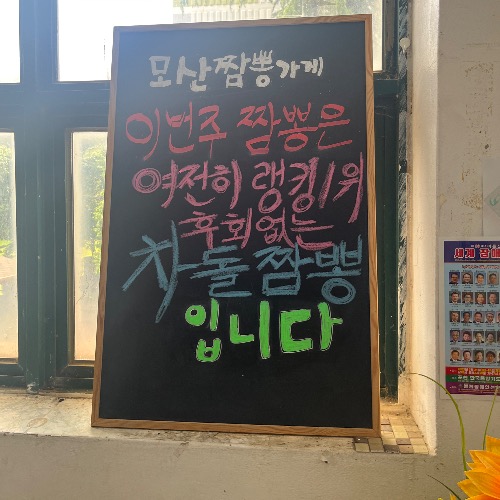 모산짬뽕가게
이번주 짬뽕은
여전히 랭킹1위
후회없는
차돌짬뽕
입니다
세계